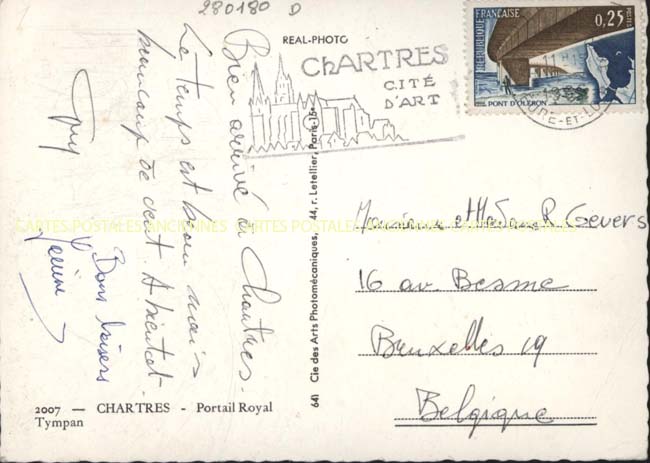 280180 D
REAL-PHOTO
CHARTRES
CITÉ
D'ART
RÉPUBLIQUE FRANÇAISE
POSTES
0,25
PONT D'OLÉRON
EURE-ET-LOIR
Bien arrivé à Chartres.
Le temps est bon mais
beaucoup de vent. A bientot.
Guy
Bons baisers
641 Cie des Arts Photomécaniques, 44, r. Letellier, Paris-15e
Monsieur et Madame R Gevers
16 av. Besme
Bruxelles 19
Belgique
2007 — CHARTRES - Portail Royal
Tympan
CARTES POSTALES ANCIENNES CARTES POSTALES ANCIENNES CARTES POSTALES ANCIENNES